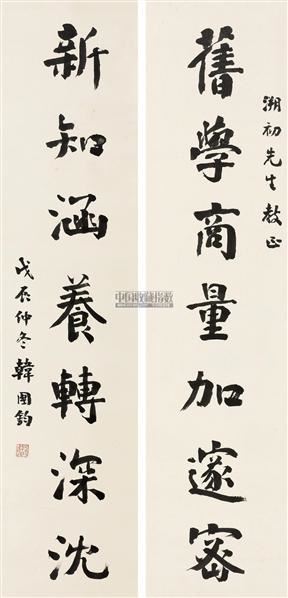 溯初先生教正
舊學商量加邃密
新知涵養轉深沈
戊辰仲冬韓國鈞
中国收藏指数